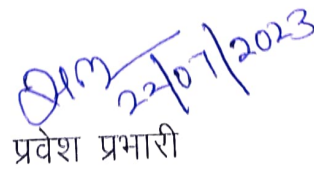 22/07/2023
प्रवेश प्रभारी